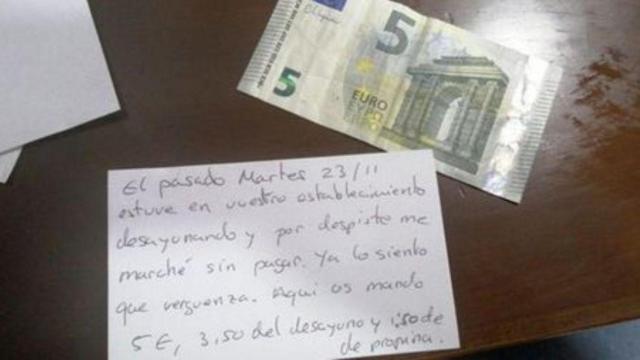 5
5
EURO
EYPΩ
El pasado Martes 23/11
estuve en vuestro establecimiento
desayunando y por despiste me
marché sin pagar. Ya lo siento
que verguenza. Aqui os mando
5€, 3,50 del desayuno y 1,50 de
de propina.